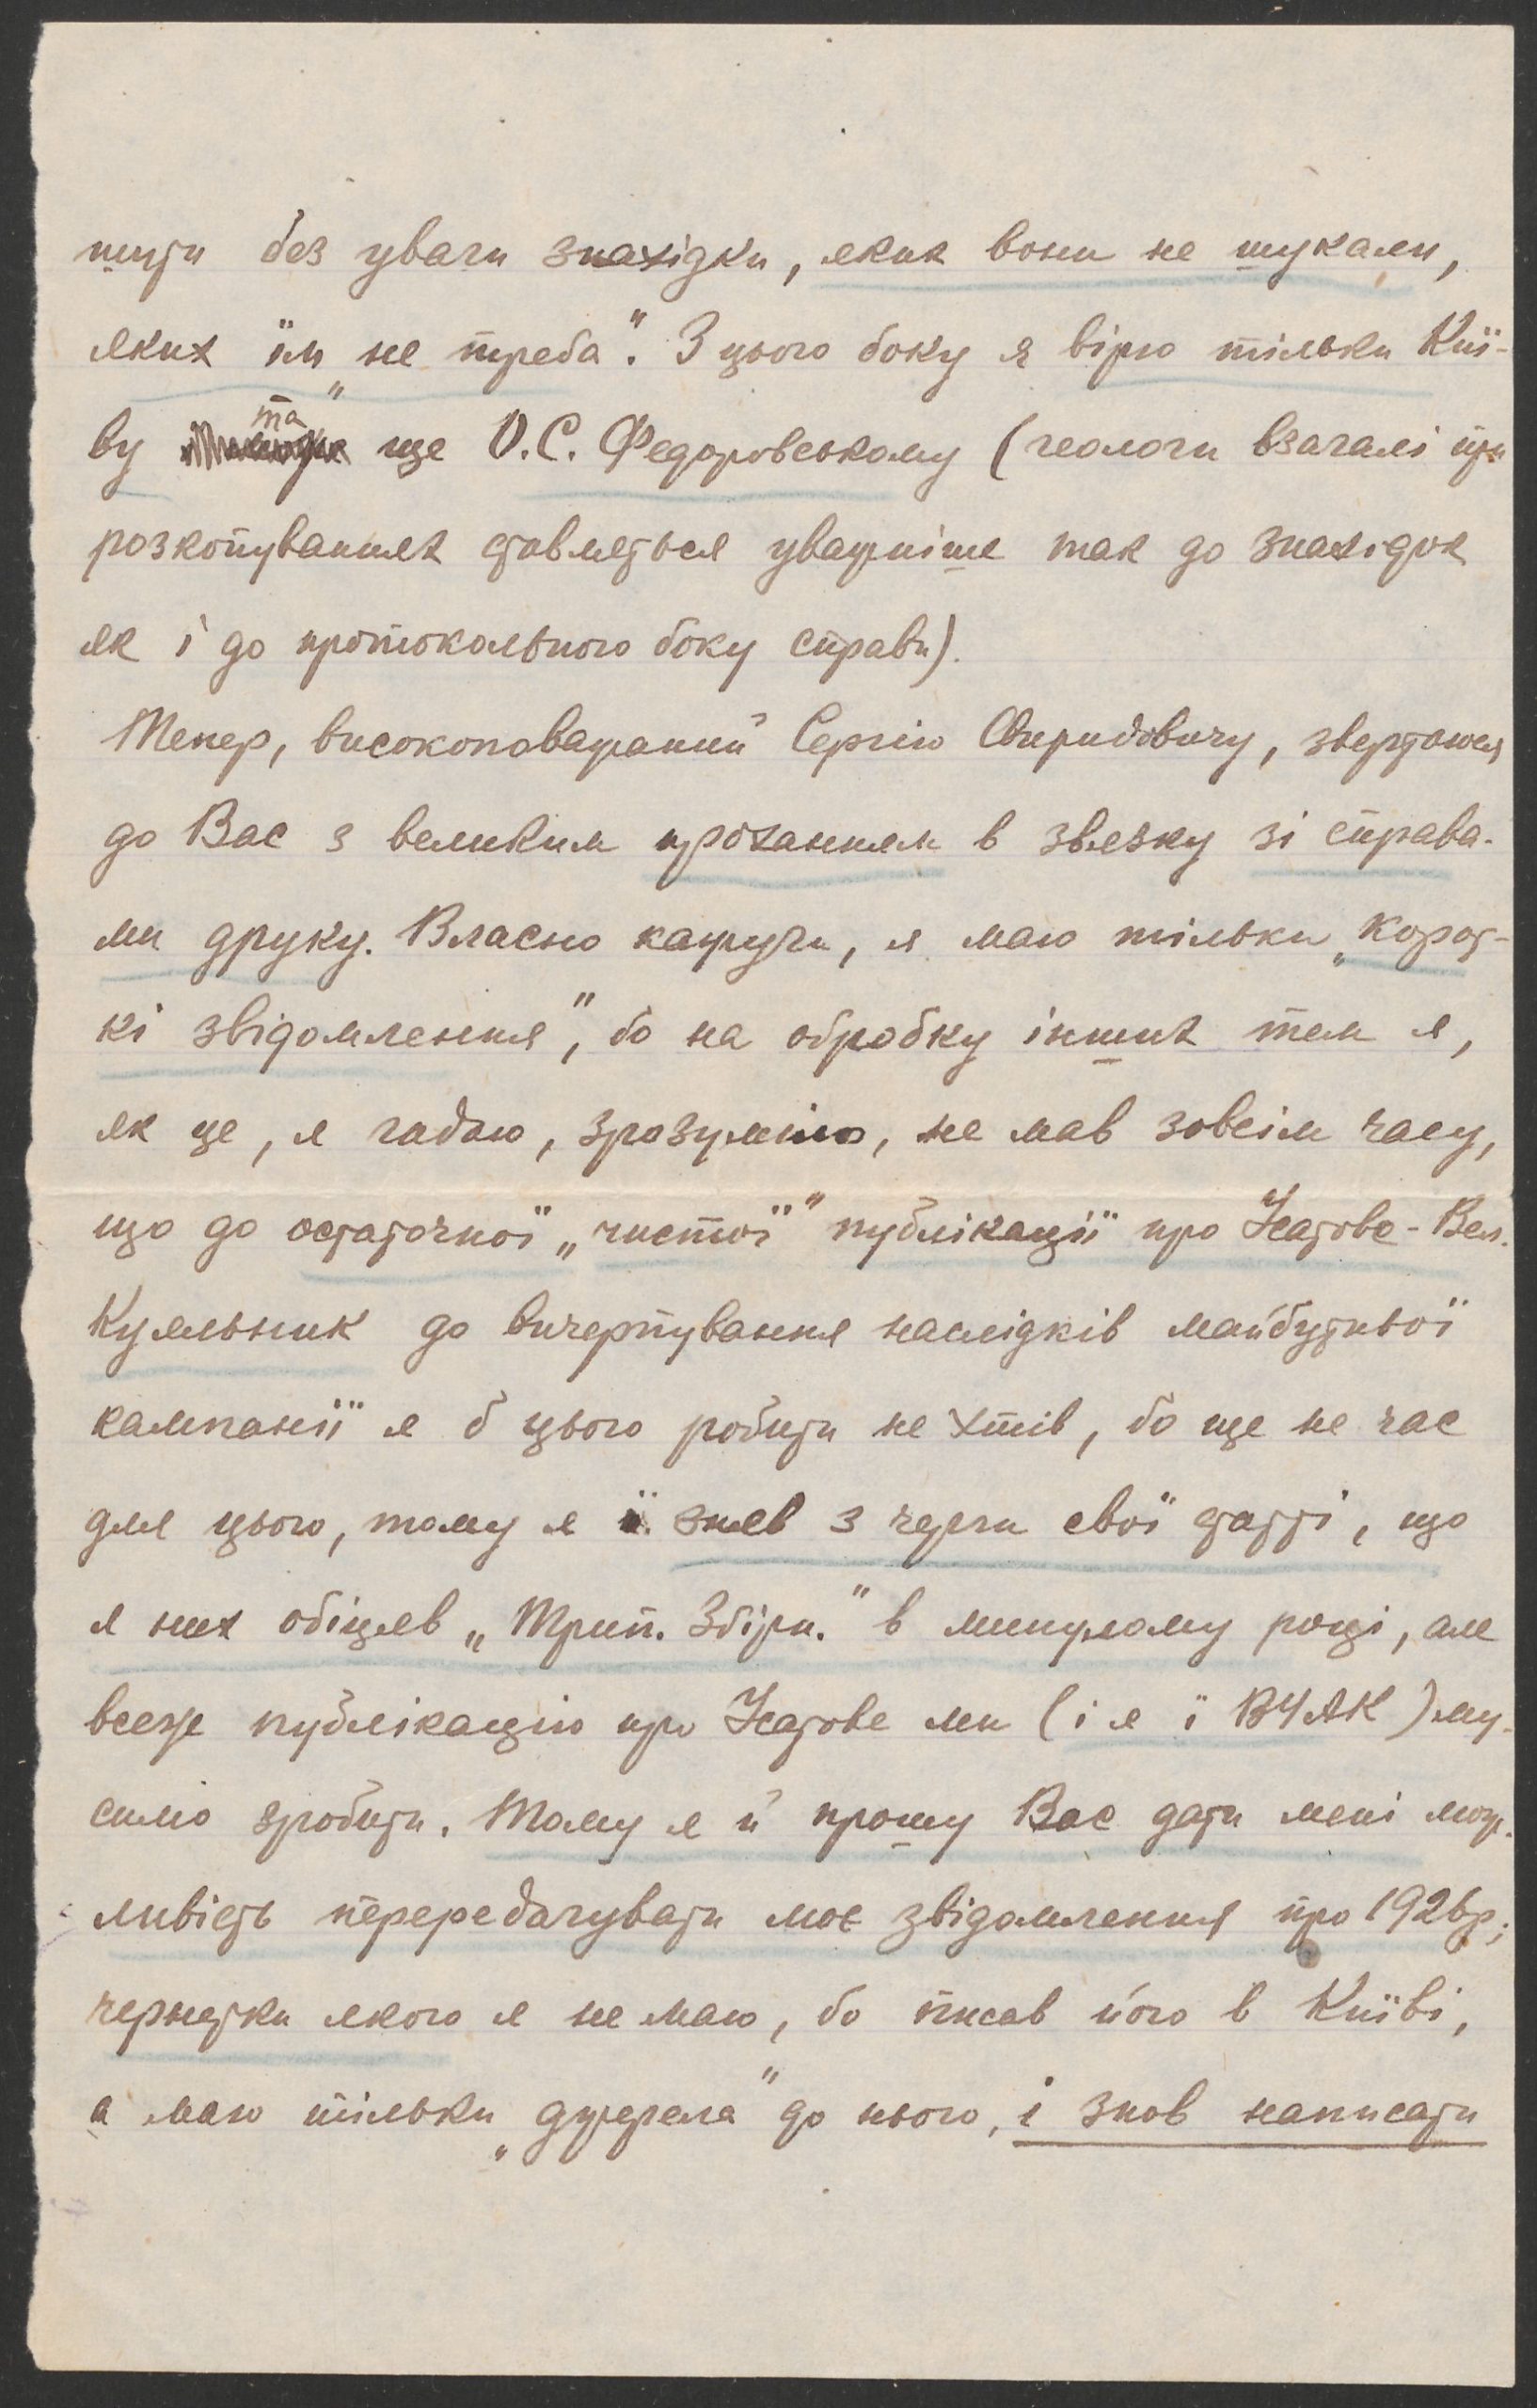 пити без уваги знахідки, яких вони не шукали,
яких їм „не треба“. З цього боку я вірю тільки Киї-
ву та ще О.С. Федоровському (геологи взагалі при
розкопуваннях ставляться уважніше так до знахідок
як і до протокольного боку справи).
Тепер, високоповажаний Сергію Свиридовичу, звертаюся
до Вас з великим проханням в звязку зі справа-
ми друку. Власно кажучи, я маю тільки „корот-
кі звідомлення“, бо на обробку інших тем я,
як це, я гадаю, зрозуміло, не мав зовсім часу,
що до остаточної „чистої“ публікації про Усатове-Вел.
Куяльник до вичерпування наслідків майбутньої
кампанії я б цього робити не хтів, бо ще не час
для цього, тому я й зняв з черги свої статті, що
я них обіцяв „Трип. Збірн.“ в минулому році, але
всеж публікацію про Усатове ми (і я і ВУАК) му-
симо зробити. Тому я й прошу Вас дати мені мож-
ливість перередагувати моє звідомлення про 1926р.;
чернетки якого я не маю, бо писав його в Київі,
а маю тільки „джерела“ до нього, і знов написати